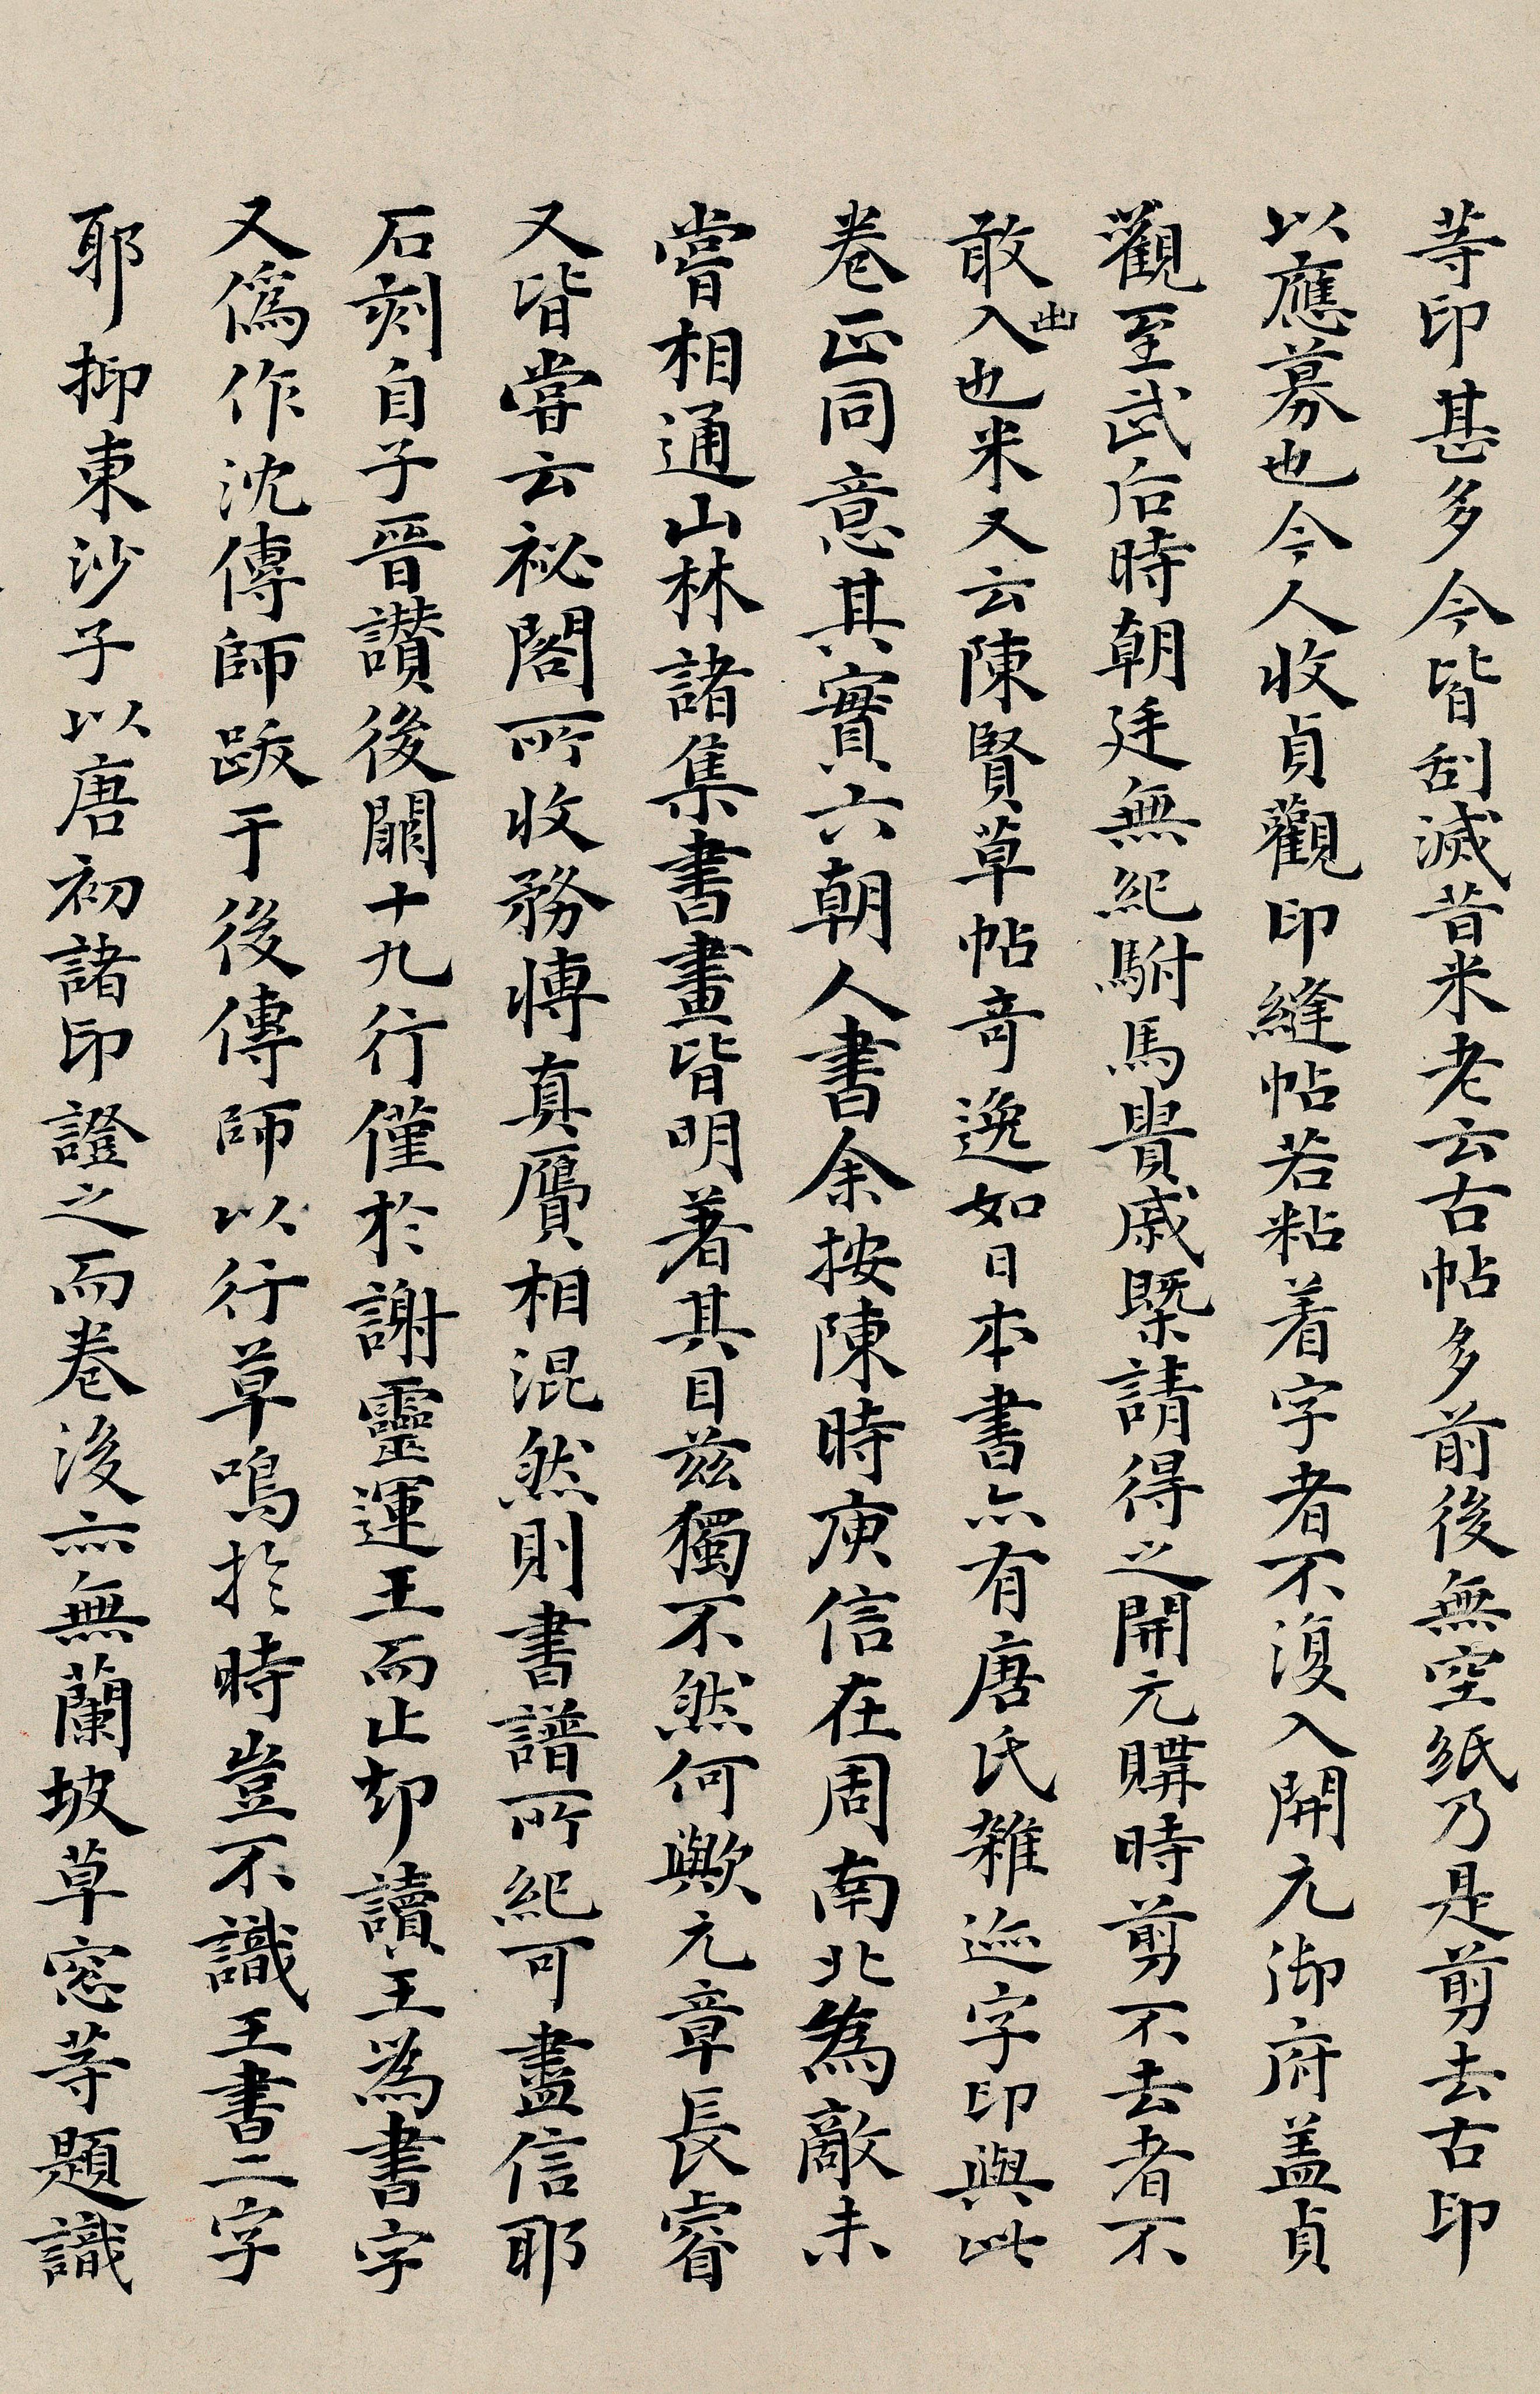 等印甚多今皆刮滅昔米老云古帖多前後無空紙乃是剪去古印
以應募也今人收貞觀印縫帖若粘着字者不復入開元御府盖貞
觀至武后時朝廷無紀駙馬貴戚槩請得之開元購時剪不去者不
敢出入也米又云陳賢草帖奇逸如日本書亦有唐氏雜迹字印與此
卷正同意其實六朝人書余按陳時庾信在周南北為敵未
嘗相通山林諸集書畫皆明著其目兹獨不然何歟元章長睿
又皆嘗云祕閣所收務博真贋相混然則書譜所紀可盡信耶
石刻自子晉讃後闕十九行僅於謝靈運王而止却讀王為書字
又偽作沈傳師跋于後傳師以行草鳴於時豈不識王書二字
耶抑東沙子以唐初諸印證之而卷後亦無蘭坡草窓等題識